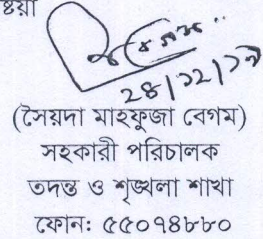 ২৪/১২/১৭
(সৈয়দা মাহফুজা বেগম)
সহকারী পরিচালক
তদন্ত ও শৃঙ্খলা শাখা
ফোন: ৫৫০৭৪৮৮০